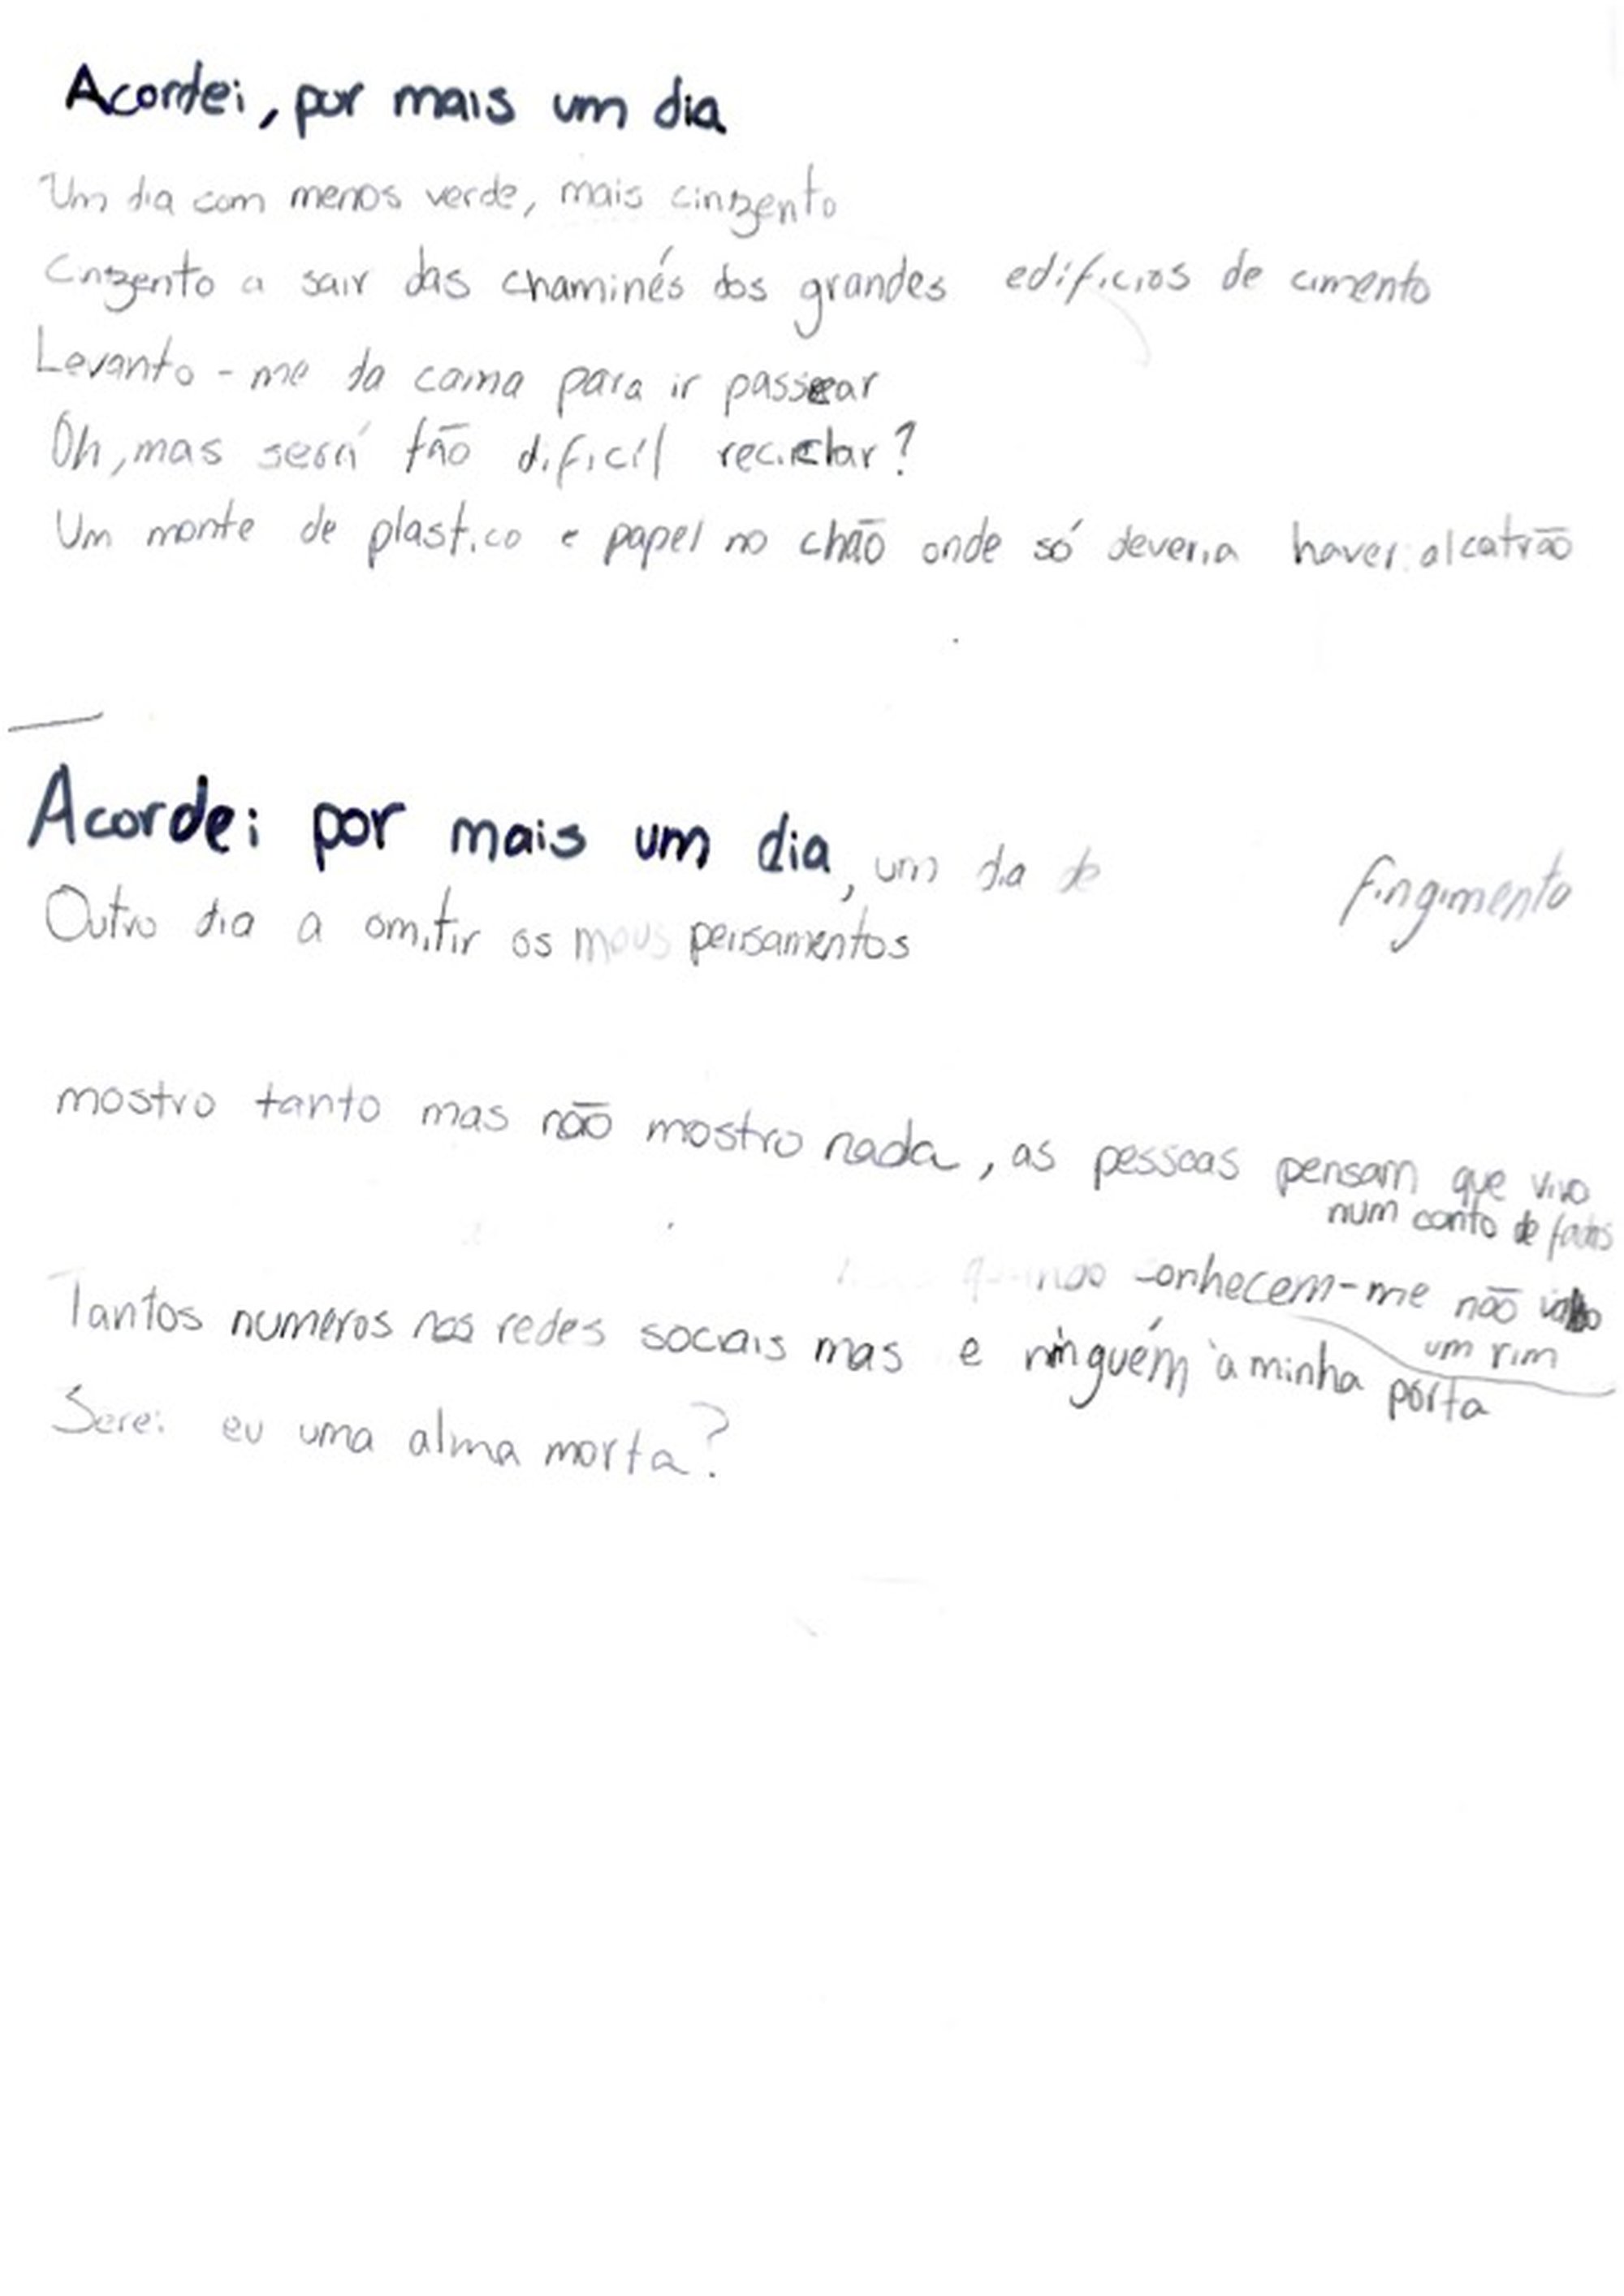 Acordei, por mais um dia
Um dia com menos verde, mais cinzento
Cinzento a sair das chaminés dos grandes edifícios de cimento
Levanto-me da cama para ir passear
Oh, mas será tão dificil reciclar?
Um monte de plastico e papel no chão onde só deveria haver alcatrão
Acordei por mais um dia, um dia de fingimento
Outro dia a omitir os meus pensamentos
mostro tanto mas não mostro nada, as pessoas pensam que vivo
num conto de fadas
conhecem-me não
um rim
Tantos numeros nas redes sociais mas e ninguém à minha porta
Serei eu uma alma morta?